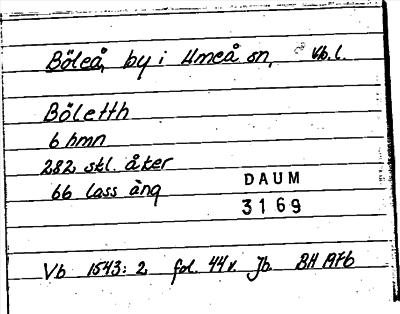 Böleå, by i Umeå sn, Vb.l.
Böletth
6 hmn
282 skl. åker
66 lass äng
DAUM
3169
Vb 1543: 2 fol. 44v. Jb. BH 1976